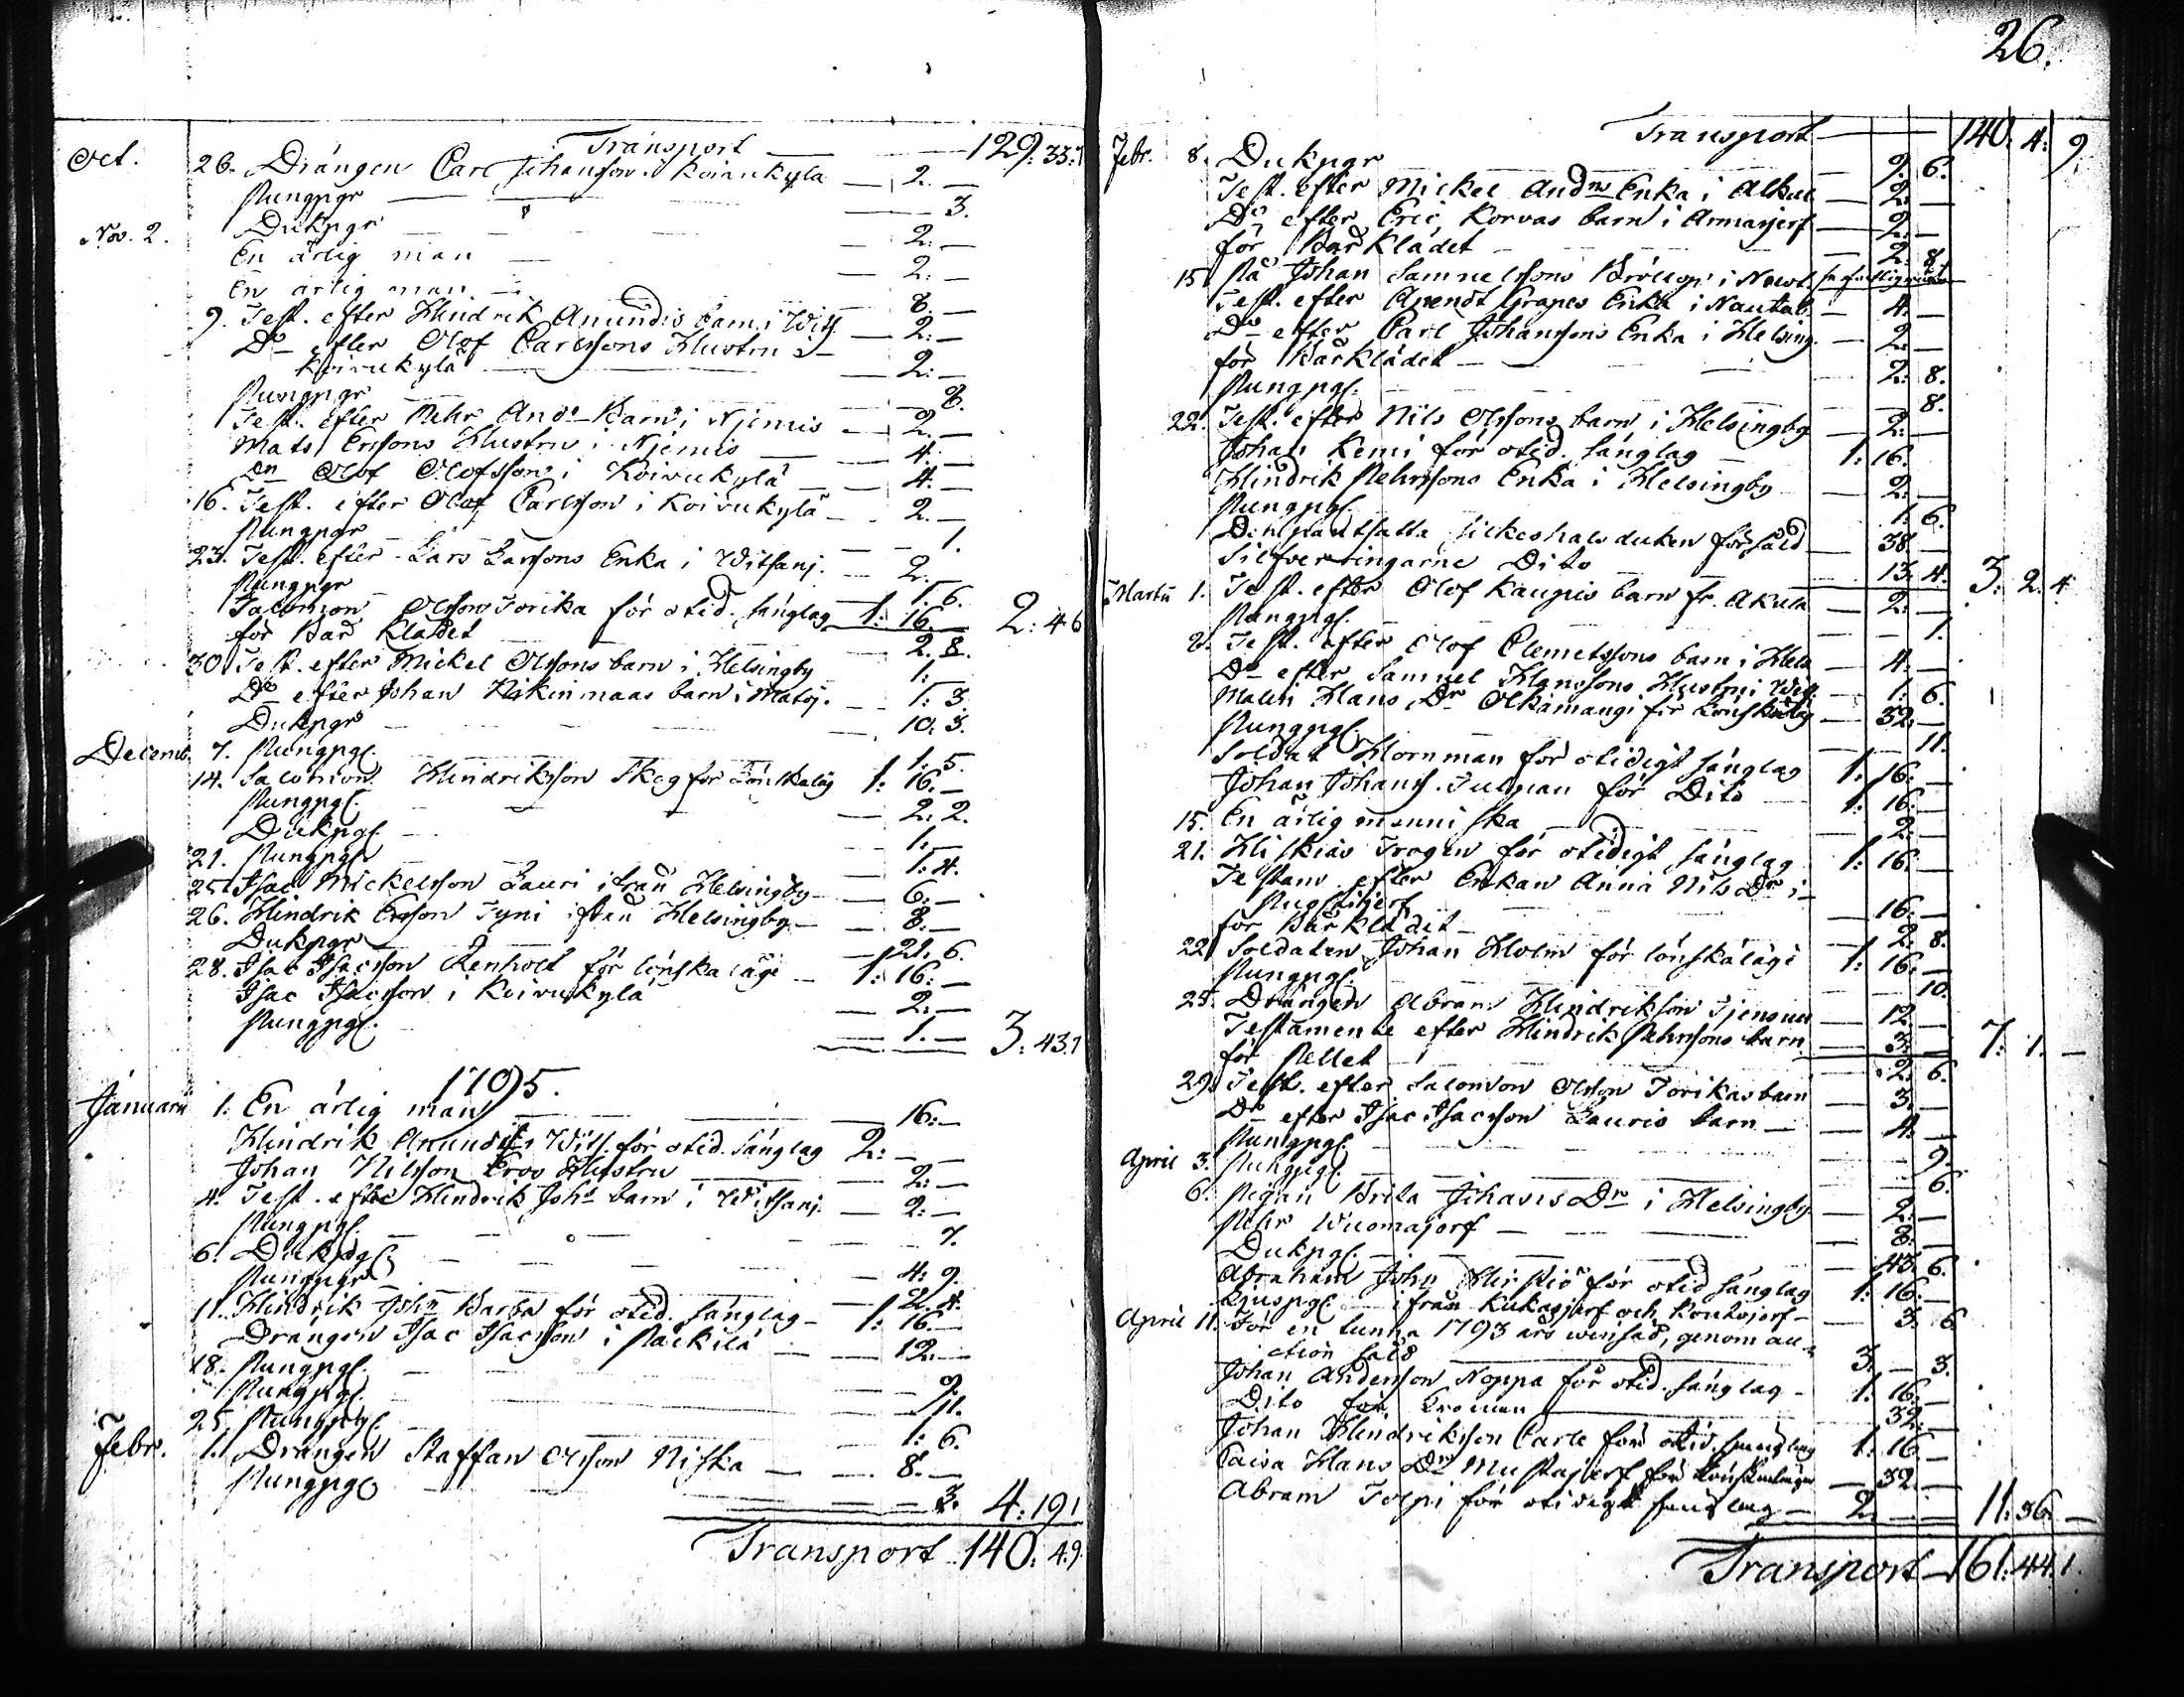 Transport — 129: 33:
Oct. 26. Drängen Carl Johansson. Koivukyla — 2. —
Pungpgr — 3.
Nov. 2. Dukpgr — 2: —
En ärlig man — 2: —
En ärlig man — 8. —
9. Test. efter Hindrik Anundis barn i Wits. — 2: —
Do efter Olof Carlssons Hustru i
Koivukylä — 2: —
Pungpgr — 8.
Test. efter Pehr Ands Barn i Njemis — 2. —
Mats Erssons Hustru i Njemis — 4. —
Dn Olof Olofsson i Koivukylä — 4. —
16. Test. efter Olof Carlsson i Koivukylä — 2. —
Pungpgr — 1.
23. Test. efter Lars Larssons Enka i Witsanj. — 2. —
Pungpgr — 1. 6.
Salomon Olsson Torika för otid. sänglag 1: 16. — 2: 46
för Bår Klädet — 2. 8.
30. Test. efter Mickel Olssons barn i Helsingby — 1: —
Do efter Johan Niskinmaas barn i Matoj. — 1: 3.
Dukpgr — 10: 3.
Decemb. 7. Pungpgl. — 1: 5.
14. Salomon Hindriksson Skog för Lönskaläg 1: 16. —
Pungpgl. — 2: 2.
Dukpgl. — 1. —
21. Pungpgr — 1: 4.
25. Isac Mickelsson Lauri ifrån Helsingby — 6. —
26. Hindrik Ersson Tyni ifrån Helsingby — 8. —
Dukpgr — 21. 6.
28. Isac Isacsson Renholt för lönskaläge — 1: 16: —
Isac Isacsson i Koivukylä — 2. —
Pungpgl. — 1. — 3: 43.1
1795.
Januarii 1. En ärlig man — 16: —
Hindrik Anundis Wits. för otid. sänglag 2: —
Johan Nilsson Eros Hustru — 2: —
4. Test. efter Hindrik Johs barn i Witsanj. — 2: —
Pungpgl. — 7.
6. Dukpgl. — 4: 9.
Pungpgr — 2. 4.
11. Hindrik Johs Barba för otid. sänglag — 1: 16. —
Drängen Isac Isacsson i Päckilä — 12. —
18. Pungpgl. — 9.
Pungpgl. — 11.
25. Pungpgl. — 1: 6.
Febr. 1. Drängen Staffan Olsson Niska — 8. —
Pungpgl — 3. 4: 19 1
Transport 140: 4.9.
26.
Transport — 140: 4: 9.
Febr. 8. Dukpgr — 9. 6.
Test. efter Mickel Ands Enka i Alkul — 2. —
Do efter Eric Korvas barn i Armasjerf — 2. —
för Bårklädet — 2. 8.
15. På Johan Samuelssons Bröllop i Naut.
Test. efter Arendt Grapes Enka i Nautab. — 4. —
Do efter Carl Johanssons Enka i Helsing. — 2. —
för Bårklädet — 2: 8.
Pungpgl. — 8.
22. Test. efter Nils Olssons barn i Helsingby — 2: —
Johan Kemi för otid. sänglag 1: 16.
Hindrik Pehrssons Enka i Helsingby — 2: —
Pungpgl. — 1: 6.
silkeshalsduken försåld — 38. —
Silfverringarne Dito — 13. 4. 3: 2. 4.
Martii 1. Test. efter Olof Kaupis barn fr. Akula — 2: —
Pungpgl. — 1.
2. Test. efter Olof Clemetssons barn i Hels — 4. —
Do efter Samuel Hanssons Hustru i Wits. — 1: 6.
Malin Hans Dr Olkamangi för Lönskaläg — 32. —
Pungpgl. — 11.
Soldat Hornman för otidigt sänglag 1: 16: —
Johan Johans. Julpau för Dito 1: 16: —
15. En ärlig menniska — 2. —
21. Hiskias Trogen för otidigt sänglag 1: 16: —
Testam. efter Enkan Anna Nils Dr i
— 16: —
för Bårklädet — 2. 8.
22. Soldaten Johan Holm för lönskaläge 1: 16. —
Pungpgl. — 10.
25. Drängen Abram Hindriksson Tjensuu — 12. —
Testamente efter Hindrik Pehrssons barn — 3. — 7: 1. —
för Pellet — 2. 6.
29. Test. efter Salomon Olsson Torikas barn — 3. —
Do efter Isac Isacsson Lauris barn — 4. —
Pungpgl. — 9.
April 3. Pungpgl. — 6.
6. Pigan Brita Johans Dr i Helsingby — 2. —
Pehr Wuomajerf — 8. —
Dukpgl. — 43. 6.
Abraham Johs Hirskiö för otid sänglag 1: 16. —
Ljuspgl. ifrån Kukasjerf och Korttojerf — 3. 6.
April 11. För en tunna 1793 års winsäd, genom au-
ction såld 3. — 3.
Johan Andersson Noppa för otid. sänglag 1. 16. —
Dito för Croman — 32. —
Johan Hindriksson Carle för otid. sänglag 1: 16. —
Caisa Hans Dr Mustajerf för Lönskaläge — 32. —
Abram Tolpi för otidigt sänglag — 2. — 11: 36. —
Transport — 161: 44: 1.